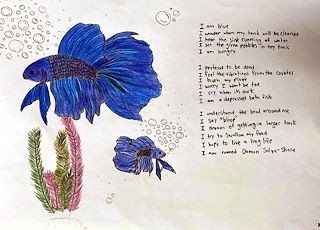 I am blue
I wonder when my tank will be cleaned
I hear the sink running of water
I see the green pebbles in my tank
I am hungry
I pretend to be dead
I feel the vibrations from the counter
I touch my plant
I worry I won't be fed
I cry when it's dark
I am a depressed beta fish
I understand the world around me
I say "blop"
I dream of getting a larger tank
I try to swallow my food
I hope to live a long life
I am named Demon